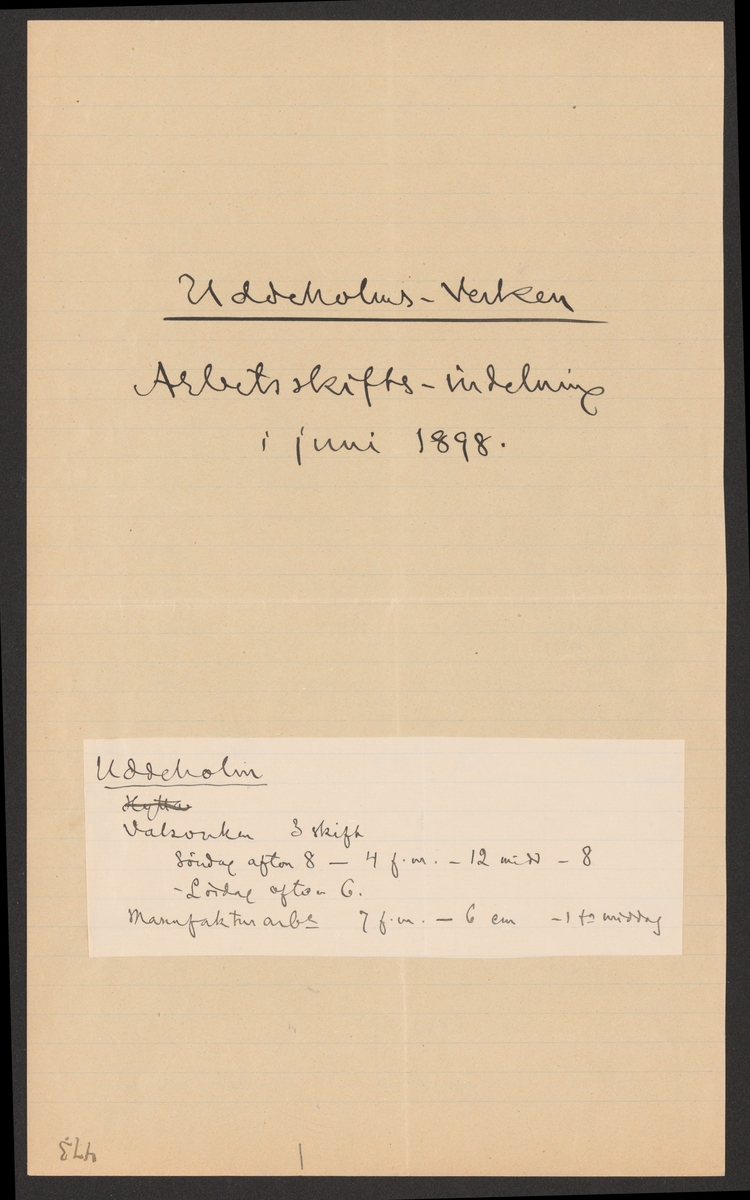 Uddeholms-Verken
Arbetsskifts-indelning
i juni 1898.
Uddeholm
Hytta
Valsverken 3 skift
Söndag afton 8 — 4 f.m. — 12 midd — 8
- Lördag afton 6.
Manufakturarb. 7 f.m. — 6 em - 1 t. middag
473
1